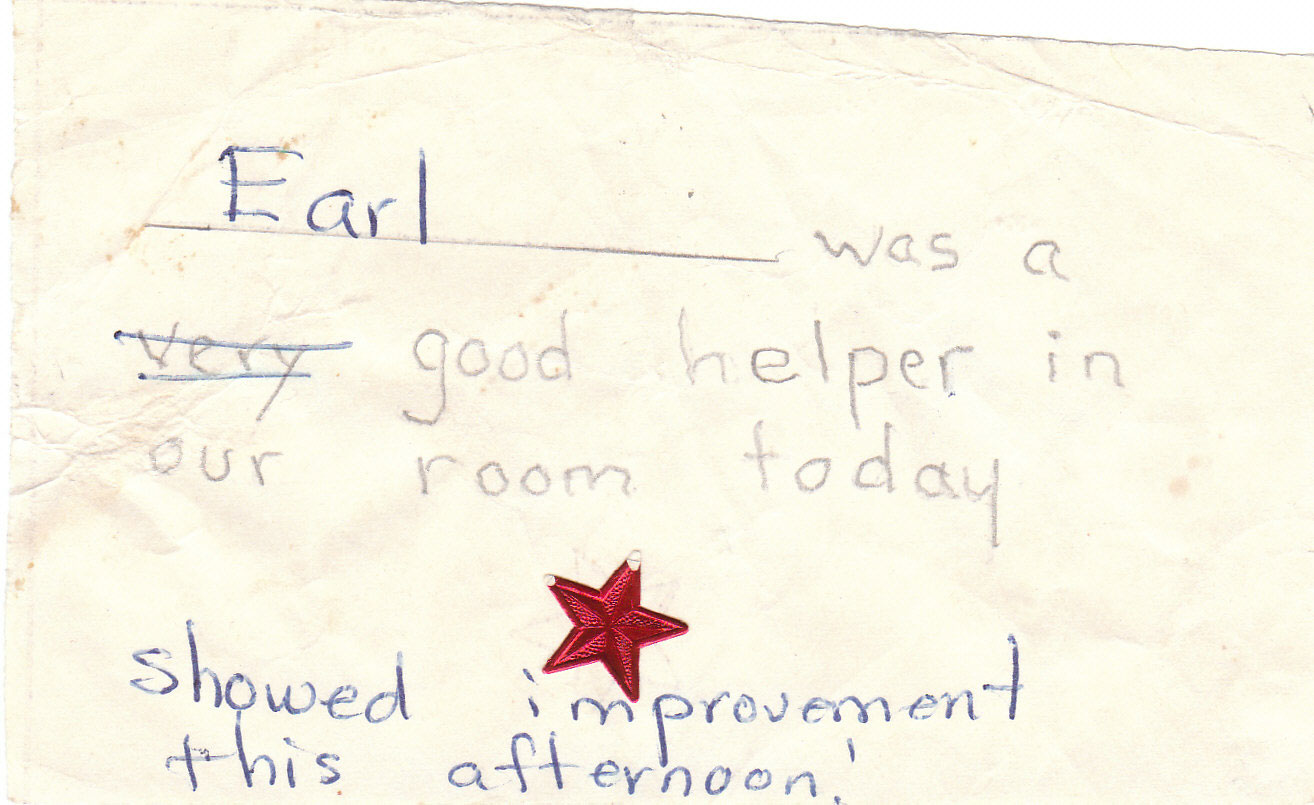 Earl was a
very good helper in
our room today
showed improvement
this afternoon!